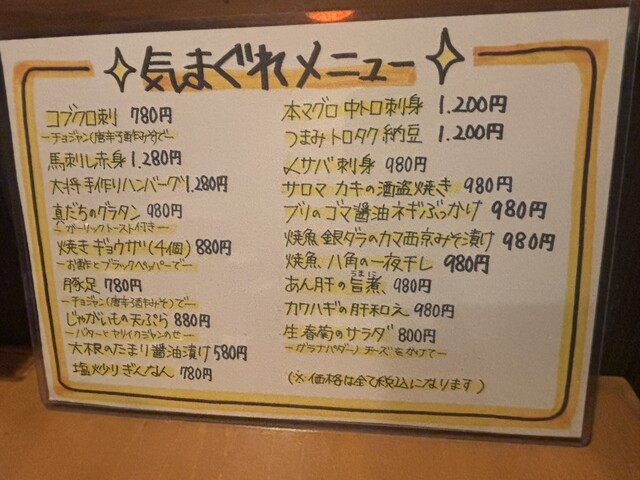 気まぐれメニュー
コブクロ刺 780円
ーチョジャン(唐辛子酢みそ)でー
馬刺し赤身 1.280円
大将手作りハンバーグ 1.280円
真だちのグラタン 980円
ーガーリックトースト付きー
焼きギョウザ(4個) 880円
ーお酢とブラックペッパーでー
豚足 780円
ーチョジャン(唐辛子酢みそ)でー
じゃがいもの天ぷら 880円
ーバターとヤリイクジャンのせー
大根のたまり醤油漬け 580円
塩炒りぎんなん 780円
本マグロ 中トロ刺身 1.200円
つまみトロタク納豆 1.200円
〆サバ刺身 980円
サロマ カキの酒盗焼き 980円
ブリのゴマ醤油ネギぶっかけ 980円
焼魚、銀ダラのカマ西京みそ漬け 980円
焼魚、八角の一夜干し 980円
あん肝の旨煮 980円
うまに
カワハギの肝和え 980円
生春菊のサラダ 800円
ーグラナパダーノチーズをかけてー
(※価格は全て税込になります)